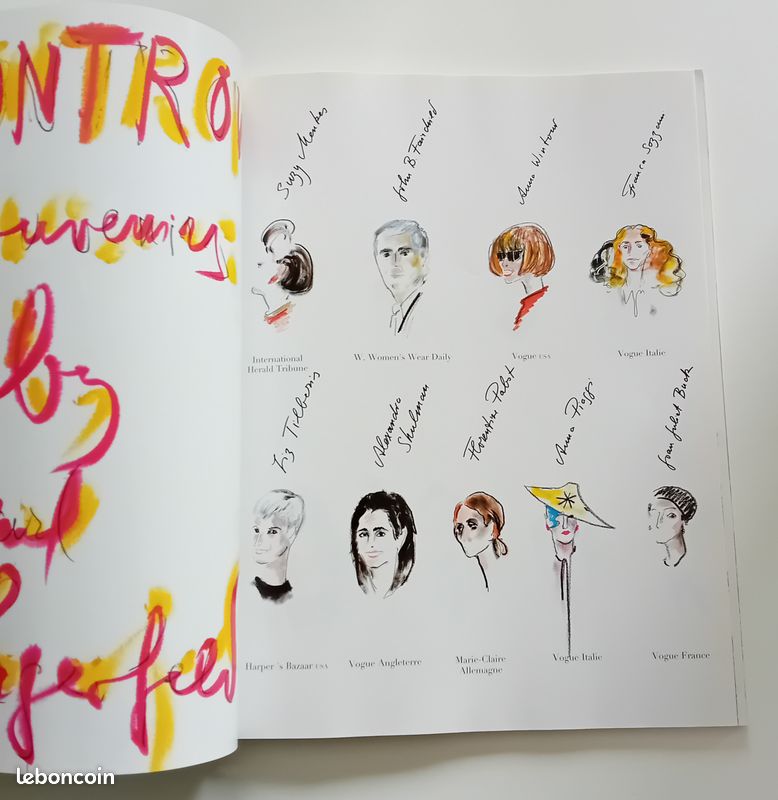 NTRO
uvenirs
by
arl
gerfeld
Suzy Menkes
John B Fairchild
Anna Wintour
Franca Sozzani
International
Herald Tribune
W. Women's Wear Daily
Vogue USA
Vogue Italie
Liz Tilberis
Alexandra
Shulman
Florentine Pabst
Anna Piaggi
Joan Juliet Buck
Harper 's Bazaar USA
Vogue Angleterre
Marie-Claire
Allemagne
Vogue Italie
Vogue France
leboncoin